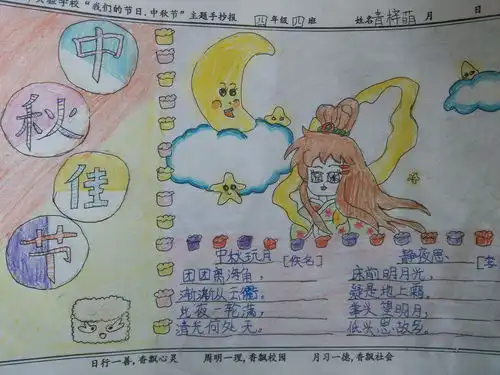 实验学校“我们的节日.中秋节”主题手抄报 四年级四班 姓名 青梓萌 月 日
中
秋
佳
节
中秋玩月 [佚名]
团团离海角,
渐渐从云衢。
此夜一轮满,
清光何处无。
静夜思 [李
床前明月光,
疑是地上霜。
举头望明月,
低头思故乡。
日行一善,香飘心灵 周明一理,香飘校园 月习一德,香飘社会